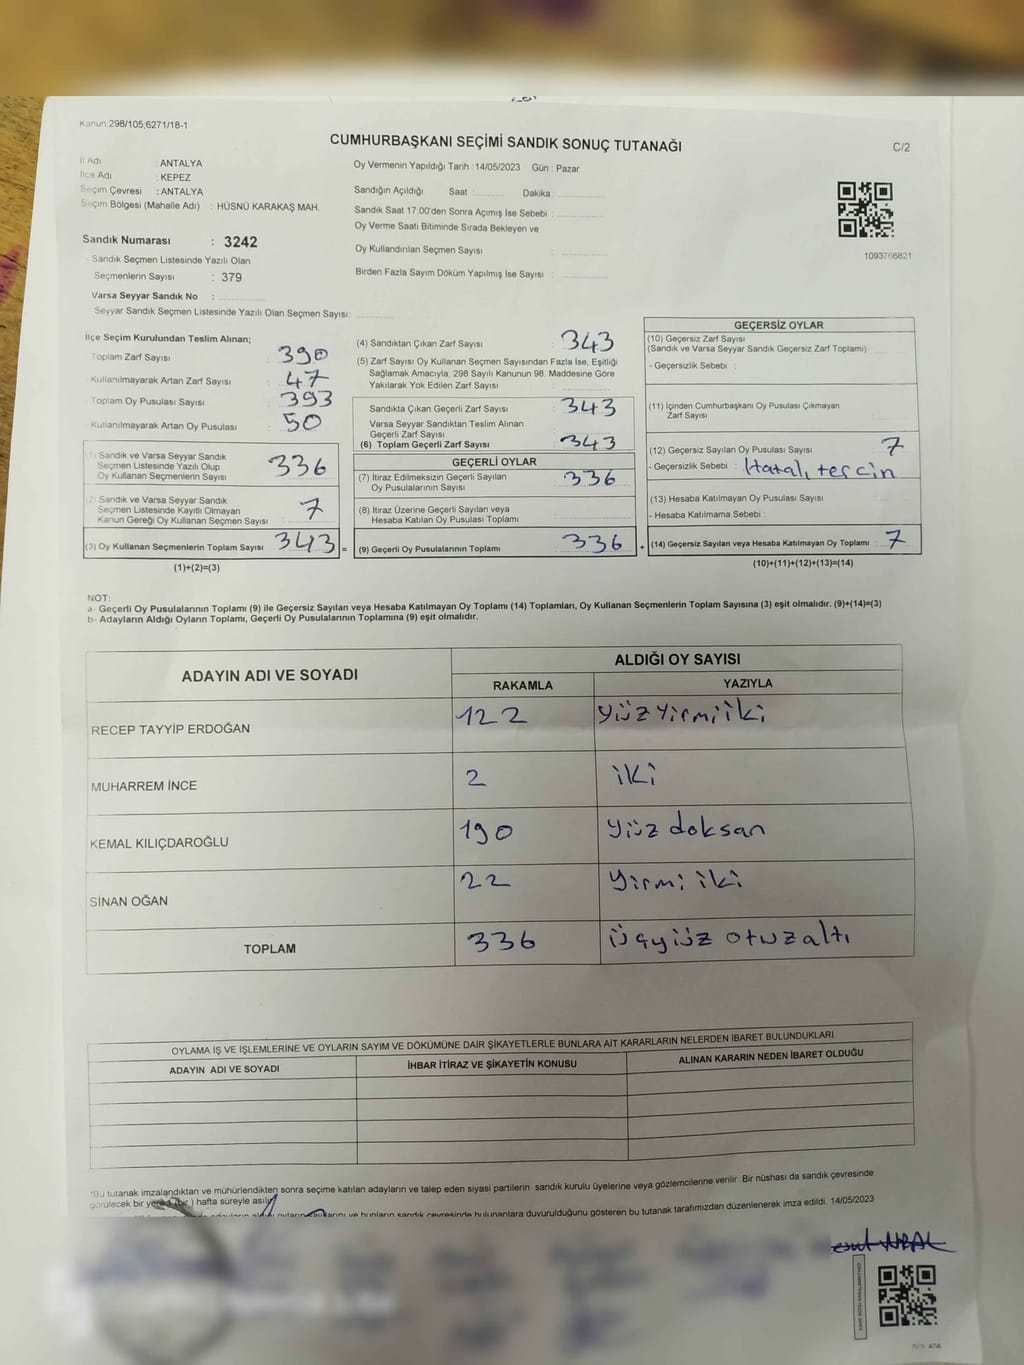 Kanun 298/105;6271/18-1
CUMHURBAŞKANI SEÇİMİ SANDIK SONUÇ TUTANAĞI
C/2
İl Adı : ANTALYA
İlçe Adı : KEPEZ
Seçim Çevresi : ANTALYA
Seçim Bölgesi (Mahalle Adı) : HÜSNÜ KARAKAŞ MAH.
Sandık Numarası : 3242
Sandık Seçmen Listesinde Yazılı Olan
Seçmenlerin Sayısı : 379
Varsa Seyyar Sandık No :
Seyyar Sandık Seçmen Listesinde Yazılı Olan Seçmen Sayısı:
Oy Vermenin Yapıldığı Tarih : 14/05/2023 Gün : Pazar
Sandığın Açıldığı Saat : Dakika :
Sandık Saat 17:00'den Sonra Açımış İse Sebebi :
Oy Verme Saati Bitiminde Sırada Bekleyen ve
Oy Kullandırılan Seçmen Sayısı :
Birden Fazla Sayım Döküm Yapılmış İse Sayısı :
1093766821
İlçe Seçim Kurulundan Teslim Alınan;
Toplam Zarf Sayısı : 390
Kullanılmayarak Artan Zarf Sayısı : 47
Toplam Oy Pusulası Sayısı : 393
Kullanılmayarak Artan Oy Pusulası : 50
(1) Sandık ve Varsa Seyyar Sandık
Seçmen Listesinde Yazılı Olup
Oy Kullanan Seçmenlerin Sayısı : 336
(2) Sandık ve Varsa Seyyar Sandık
Seçmen Listesinde Kayıtlı Olmayan
Kanun Gereği Oy Kullanan Seçmen Sayısı : 7
(3) Oy Kullanan Seçmenlerin Toplam Sayısı : 343 =
(1)+(2)=(3)
(4) Sandıktan Çıkan Zarf Sayısı : 343
(5) Zarf Sayısı Oy Kullanan Seçmen Sayısından Fazla İse, Eşitliği
Sağlamak Amacıyla; 298 Sayılı Kanunun 98. Maddesine Göre
Yakılarak Yok Edilen Zarf Sayısı :
Sandıkta Çıkan Geçerli Zarf Sayısı : 343
Varsa Seyyar Sandıktan Teslim Alınan
Geçerli Zarf Sayısı :
(6) Toplam Geçerli Zarf Sayısı : 343
GEÇERLİ OYLAR
(7) İtiraz Edilmeksizin Geçerli Sayılan
Oy Pusulalarının Sayısı : 336
(8) İtiraz Üzerine Geçerli Sayılan veya
Hesaba Katılan Oy Pusulası Toplamı :
(9) Geçerli Oy Pusulalarının Toplamı : 336 +
GEÇERSİZ OYLAR
(10) Geçersiz Zarf Sayısı
(Sandık ve Varsa Seyyar Sandık Geçersiz Zarf Toplamı) :
- Geçersizlik Sebebi :
(11) İçinden Cumhurbaşkanı Oy Pusulası Çıkmayan
Zarf Sayısı :
(12) Geçersiz Sayılan Oy Pusulası Sayısı : 7
- Geçersizlik Sebebi : Hatalı tercin
(13) Hesaba Katılmayan Oy Pusulası Sayısı :
- Hesaba Katılmama Sebebi :
(14) Geçersiz Sayılan veya Hesaba Katılmayan Oy Toplamı : 7
(10)+(11)+(12)+(13)=(14)
NOT:
a- Geçerli Oy Pusulalarının Toplamı (9) ile Geçersiz Sayılan veya Hesaba Katılmayan Oy Toplamı (14) Toplamları, Oy Kullanan Seçmenlerin Toplam Sayısına (3) eşit olmalıdır. (9)+(14)=(3)
b- Adayların Aldığı Oyların Toplamı, Geçerli Oy Pusulalarının Toplamına (9) eşit olmalıdır.
ADAYIN ADI VE SOYADI ALDIĞI OY SAYISI
RAKAMLA YAZIYLA
RECEP TAYYİP ERDOĞAN 122 yüz yirmi iki
MUHARREM İNCE 2 iki
KEMAL KILIÇDAROĞLU 190 yüz doksan
SİNAN OĞAN 22 yirmi iki
TOPLAM 336 üçyüz otuzaltı
OYLAMA İŞ VE İŞLEMLERİNE VE OYLARIN SAYIM VE DÖKÜMÜNE DAİR ŞİKAYETLERLE BUNLARA AİT KARARLARIN NELERDEN İBARET BULUNDUKLARI
ADAYIN ADI VE SOYADI İHBAR İTİRAZ VE ŞİKAYETİN KONUSU ALINAN KARARIN NEDEN İBARET OLDUĞU
*Bu tutanak imzalandıktan ve mühürlendikten sonra seçime katılan adayların ve talep eden siyasi partilerin sandık kurulu üyelerine veya gözlemcilerine verilir. Bir nüshası da sandık çevresinde
görülecek bir yere 1 (bir) hafta süreyle asılır.
bunların sandık çevresinde bulunanlara duyurulduğunu gösteren bu tutanak tarafımızdan düzenlenerek imza edildi. 14/05/2023